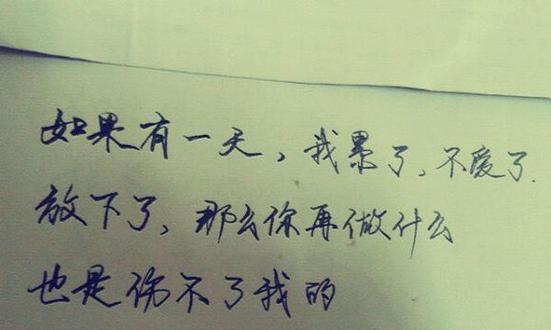 如果有一天，我累了，不爱了.
放下了，那么你再做什么
也是伤不了我的